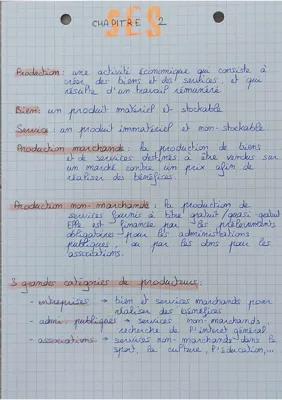 SES
CHAPITRE 2
Production : une activité économique qui consiste à
créer des biens et des services et qui
résulte d'un travail rémunéré
Bien : un produit matériel et stockable
Service : un produit immatériel et non-stockable
Production marchande : la production de biens
et de services destinés à être vendus sur
un marché contre un prix afin de
réaliser des bénéfices.
Production non-marchande : la production de
services fournis à titre gratuit/quasi-gratuit
Elle est financée par les prélèvements
obligatoires pour les administrations
publiques, ou par les dons pour les
associations.
3 grandes catégories de producteurs :
- entreprises → bien et services marchands pour
réaliser des bénéfices
- admi. publiques → services non-marchands,
recherche de l'intérêt général
- associations → services non-marchands dans le
sport, la culture, l'éducation,...